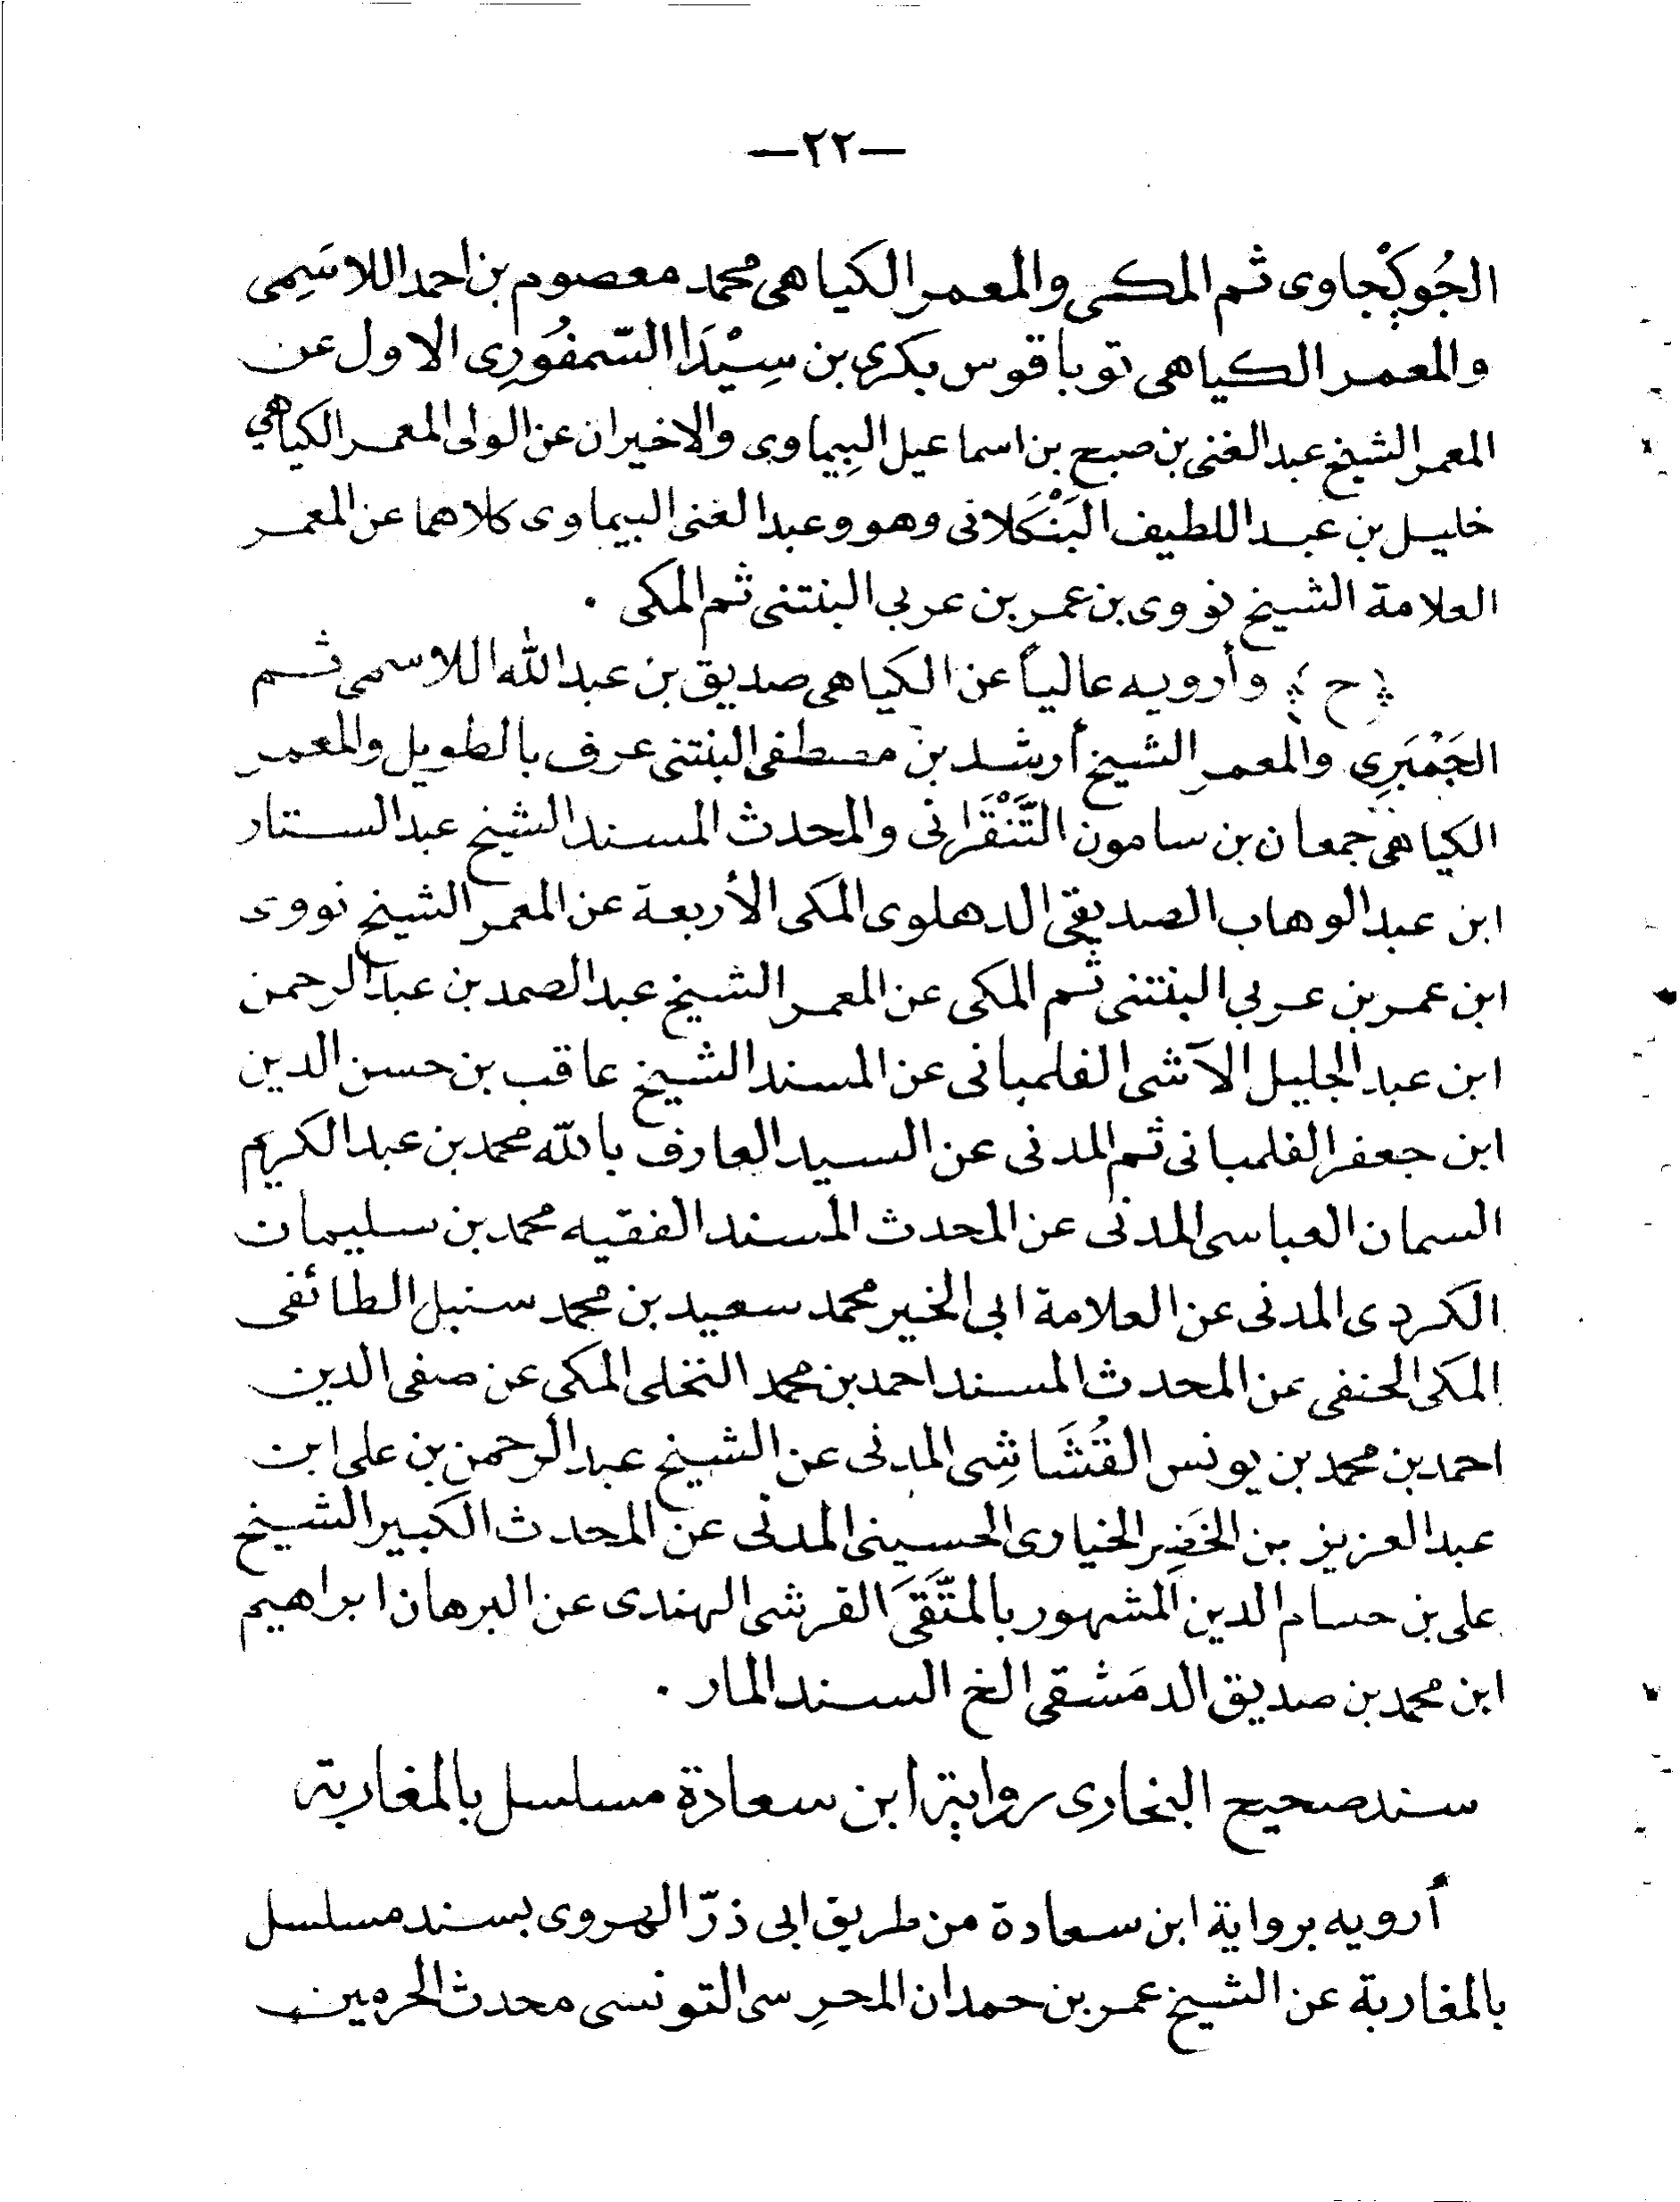 —٢٢—
الجُوكْجاوى ثم المكى والمعمر الكياهى محمد معصوم بن احمد اللاسَمِى
والمعمر الكياهى توباقوس بكرى بن سِيْدَا السَّمفُوْرِى الاول عن
المعمر الشيخ عبد الغنى بن صبح بن اسماعيل البِيماوى والاخيران عن الولى المعمر الكياهي
خليل بن عبد اللطيف البَنْكَلانى وهو وعبد الغنى البيماوى كلاهما عن المعمر
العلامة الشيخ نووى بن عمر بن عربي البنتنى ثم المكى .
(ح) وأرويه عالياً عن الكياهى صديق بن عبد الله اللاسمى ثم
الجَمْبَرِي والمعمر الشيخ أرشد بن مصطفى البنتنى عرف بالطويل والمعمر
الكياهى جمعان بن سامون التَّنْقَرانى والمحدث المسند الشيخ عبد الستار
ابن عبد الوهاب الصديقي الدهلوى المكى الأربعة عن المعمر الشيخ نووى
ابن عمر بن عربي البنتنى ثم المكى عن المعمر الشيخ عبد الصمد بن عبد الرحمن
ابن عبد الجليل الآشى الفلمبانى عن المسند الشيخ عاقب بن حسن الدين
ابن جعفر الفلمبانى ثم المدنى عن السيد العارف بالله محمد بن عبد الكريم
السمان العباسى المدنى عن المحدث المسند الفقيه محمد بن سليمان
الكردى المدنى عن العلامة ابى الخير محمد سعيد بن محمد سنبل الطائفى
المكى الحنفى عن المحدث المسند احمد بن محمد النخلى المكى عن صفى الدين
احمد بن محمد بن يونس القُشَاشِى المدنى عن الشيخ عبد الرحمن بن على ابن
عبد العزيز بن الخَضِر الخيارى الحسينى المدنى عن المحدث الكبير الشيخ
على بن حسام الدين المشهور بالمتَّقَى القرشى الهندى عن البرهان ابراهيم
ابن محمد بن صديق الدمَشقى الخ السند المار .
سند صحيح البخارى رواية ابن سعادة مسلسل بالمغاربة
أرويه برواية ابن سعادة من طريق ابى ذرّ الهروى بسند مسلسل
بالمغاربة عن الشيخ عمر بن حمدان المحرِسى التونسى محدث الحرمين